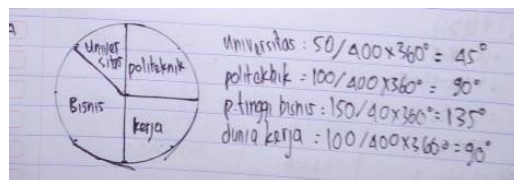 Univer
sitas
politeknik
Bisnis
kerja
Universitas : 50/400x360° = 45°
politeknik = 100/400x360° = 90°
p.tinggi bisnis : 150/40x360° = 135°
dunia kerja : 100/400x360° = 90°